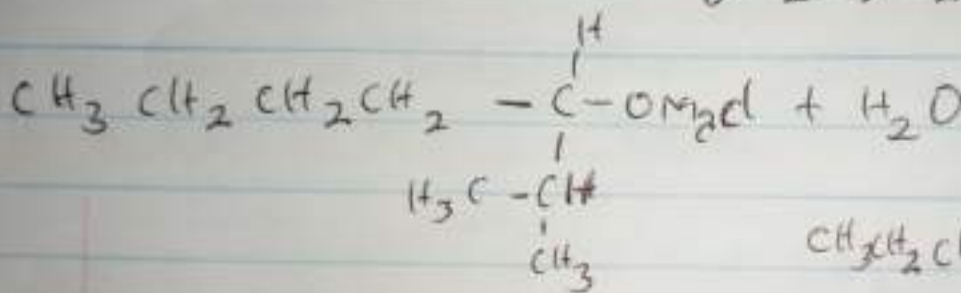 H
CH₃ CH₂ CH₂CH₂ - C - OMgCl + H₂O
H₃C - CH
CH₃
CH₃CH₂C